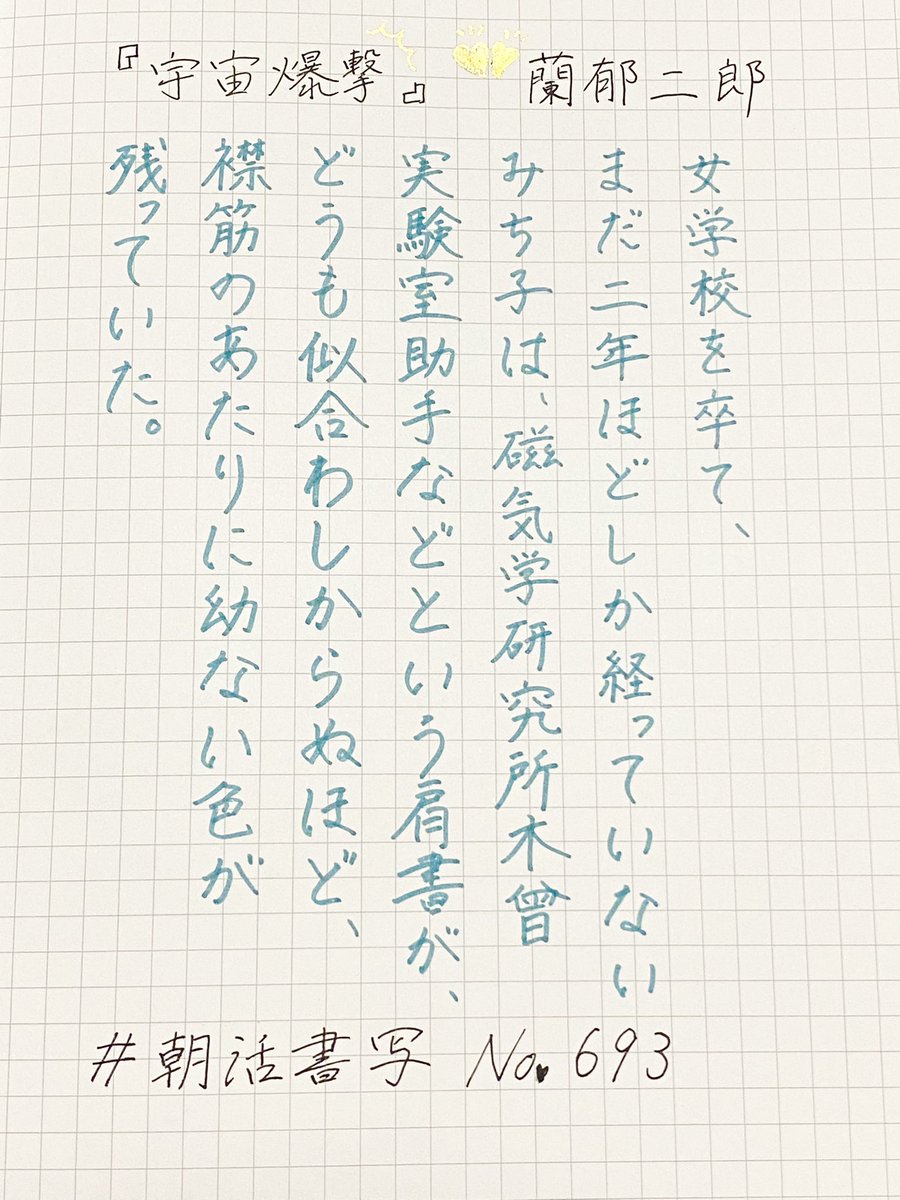 『宇宙爆撃』 蘭郁二郎
女学校を卒て、
まだ二年ほどしか経っていない
みち子は、磁気学研究所木曾
実験室助手などという肩書が、
どうも似合わしからぬほど、
襟筋のあたりに幼ない色が
残っていた。
#朝活書写 No.693